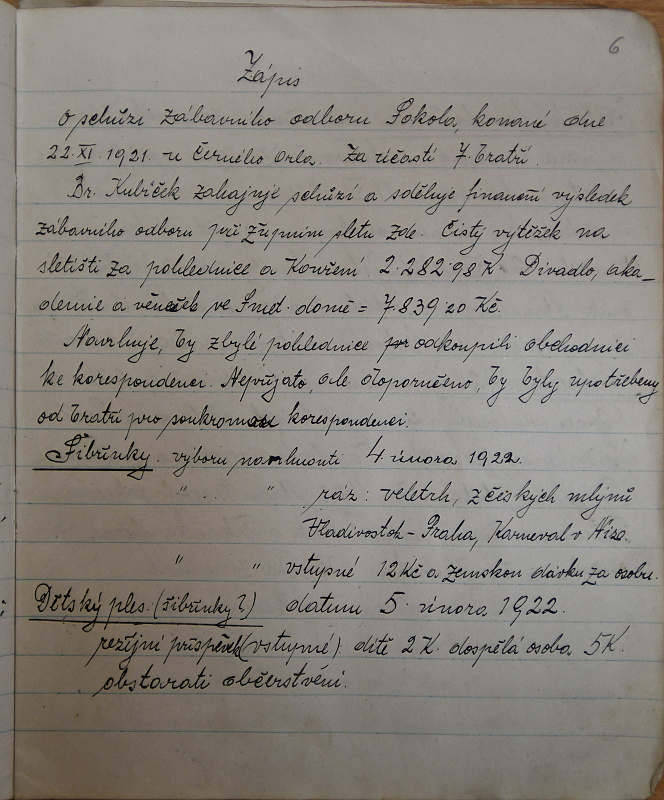 6
Zápis
o schůzi zábavního odboru Sokola, konané dne
22. XI. 1921. u Černého Orla. Za účasti 7. bratří.
Br. Kubíček zahajuje schůzi a sděluje finanční výsledek
zábavního odboru při župním sletu zde. Čistý výtěžek na
sletišti za pohlednice a kouření. 2.282.98 K. Divadlo, aka-
demie a věneček ve Smet. domě = 7.839.20 Kč.
Navrhuje, by zbylé pohlednice odkoupili obchodníci
ke korespondenci. Nepřijato, ale doporučeno, by byly upotřebeny
od bratří pro soukromou korespondenci.
Šibřinky. výboru navrhnouti 4. února 1922.
" " ráz: veletrh, z českých mlýnů
Vladivostok - Praha, Karneval v Nizze.
" " vstupné 12 Kč a zemskou dávku za osobu.
Dětský ples. (šibřinky?) datum 5. února 1922.
režijní príspěvek (vstupné) dítě 2 K. dospělá osoba 5 K.
obstarati občerstvení.